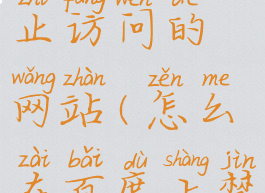 止访问的
wǎng zhàn zěn me
网站(怎么
zài bǎi dù shàng jìn
在百度上禁